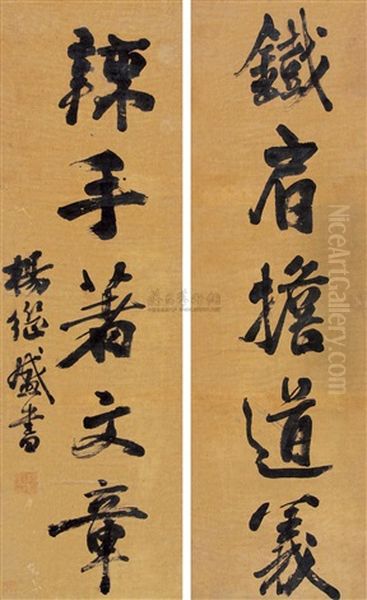 鐵肩擔道義
辣手著文章
楊繼盛書
NiceArtGallery.com
NiceArtGallery.com